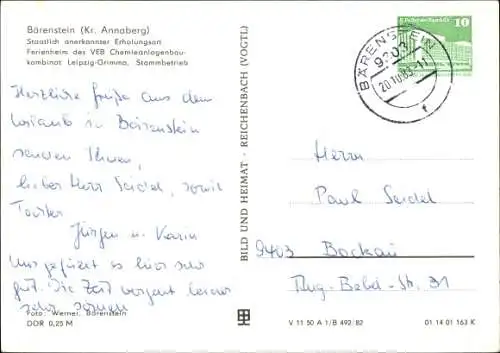 Bärenstein (Kr. Annaberg)
Staatlich anerkannter Erholungsort
Ferienheim des VEB Chemieanlagenbau-
kombinat Leipzig-Grimma, Stammbetrieb
Herzliche Grüße aus dem
Urlaub in Bärenstein
senden Ihnen,
lieber Herr Seidel, sowie
Tochter
Jürgen u. Karin
Uns gefällt es hier sehr
gut. Die Zeit vergeht leider
sehr
Foto: Werner, Bärenstein
DDR 0,25 M
BILD UND HEIMAT · REICHENBACH (VOGTL)
BÄRENSTEIN
9303
20.10.83-11
f
10
Herrn
Paul Seidel
9403 Bockau
Aug.-Bebel-Str. 31
V 11 50 A 1/B 492/82
01 14 01 163 K